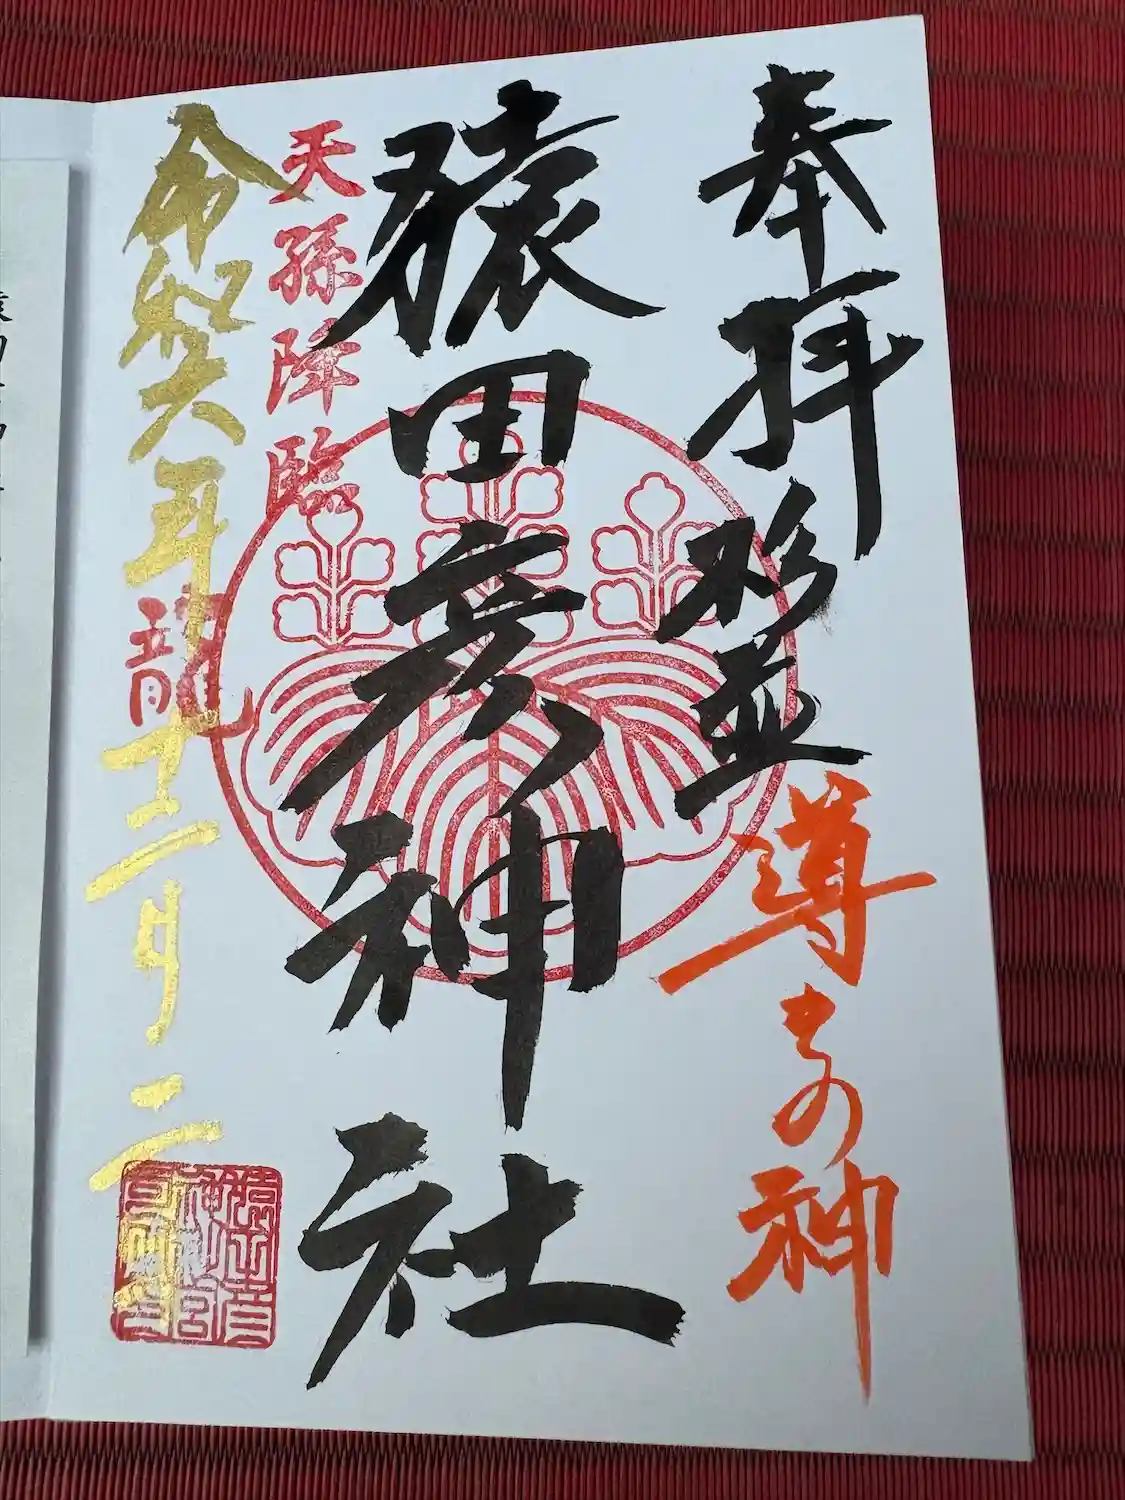 奉拝 杉並 導きの神
猿田彦神社
天孫降臨
令和六年十二月二日
龍